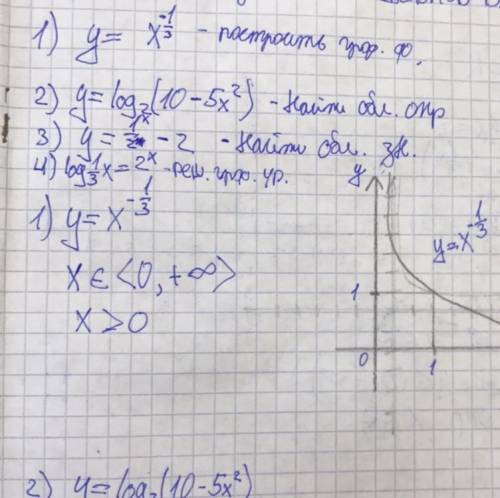 1) y = x^{-1/3} - построить граф. ф.
2) y = log₂(10 - 5x²) - Найти обл. опр
3) y = - 2 - Найти обл. зн.
4) log_{1/3} x = 2^x - реш. граф. ур.
1) y = x^{-1/3}
x ∈ <0, +∞>
x > 0
y
y = x^{-1/3}
1
0
1
2) y = log₂(10 - 5x²)